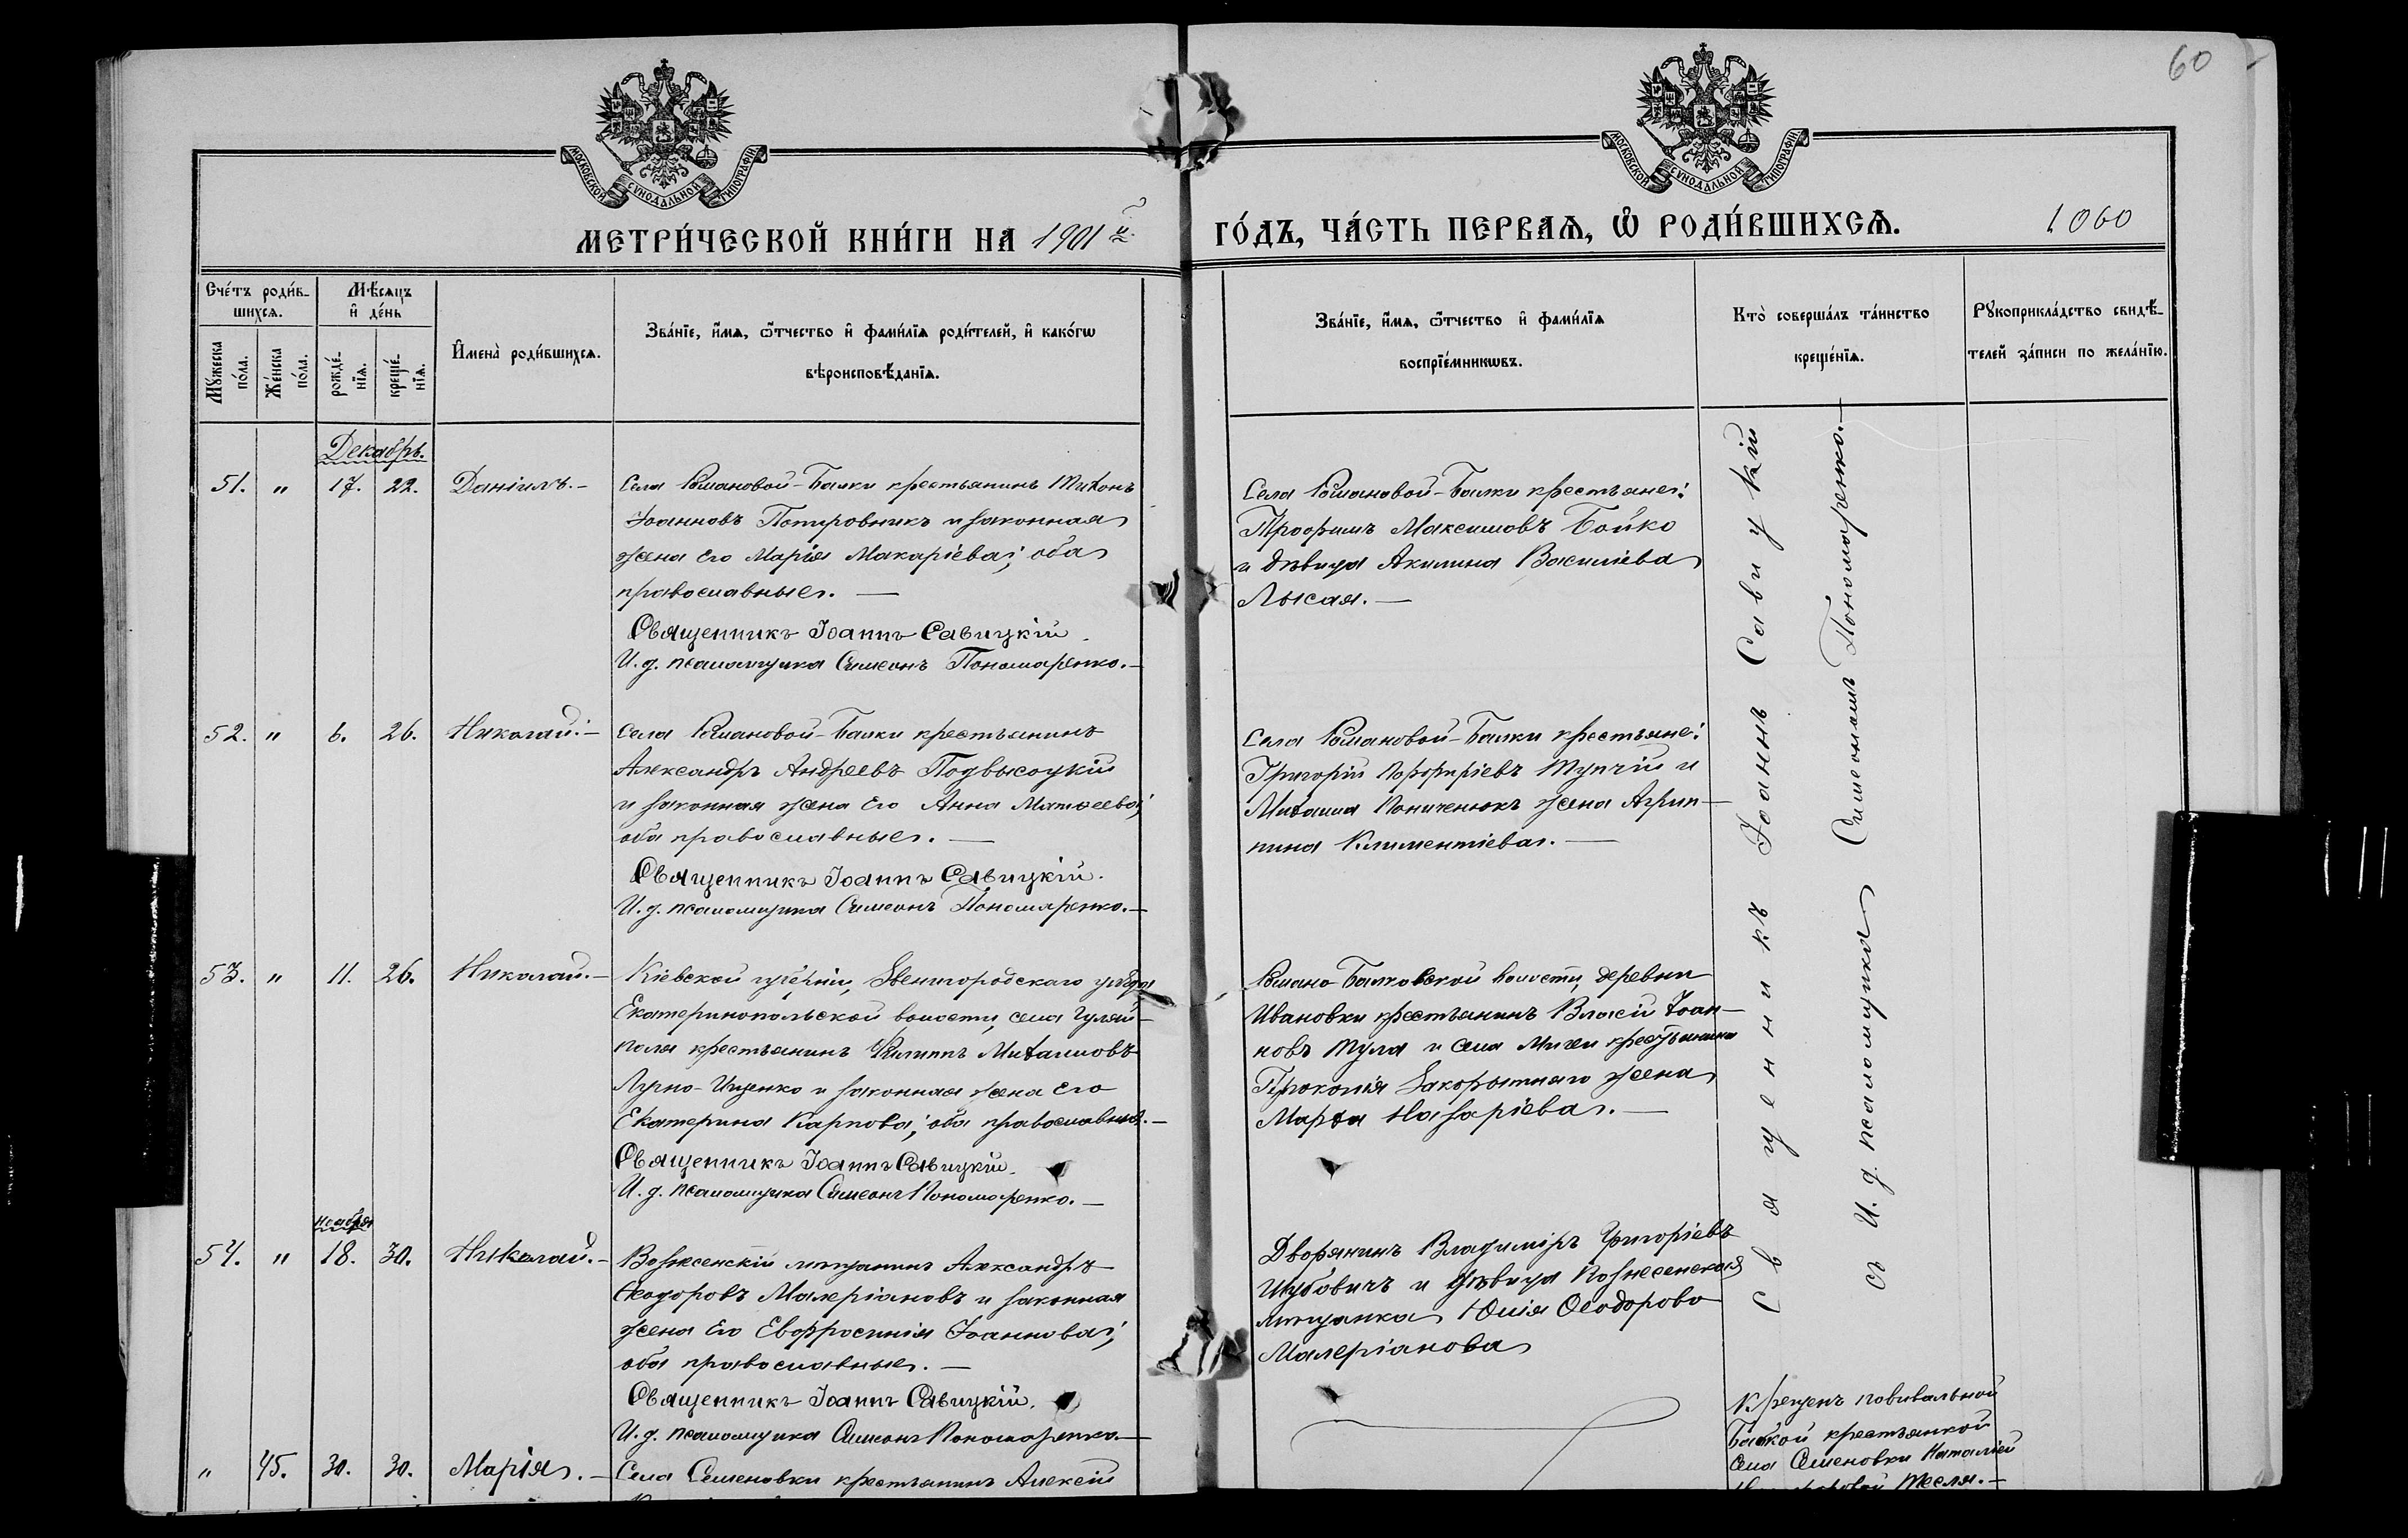 60
МОСКОВСКОЙ СѴНОДАЛЬНОЙ ТИПОГРАФІИ
МОСКОВСКОЙ СѴНОДАЛЬНОЙ ТИПОГРАФІИ
МЕТРИ́ЧЕСКОЙ КНИ́ГИ НА 1901й
ГО́ДЪ, ЧА́СТЬ ПЕРВАѦ, Ѡ҆ РОДИ́ВШИХСѦ.
1060
Сче́тъ роди́в-
шихсѧ.
Мѣ́сѧцъ
и҆ де́нь
Мꙋ́жеска
по́ла.
Же́нска
по́ла.
рожде́-
нїѧ.
креще́-
нїѧ.
И҆мена̀ роди́вшихсѧ.
Зва́нїе, и҆́мѧ, ѻ҆́тчество и҆ фами́лїѧ роди́телей, и҆ како́гѡ
вѣроисповѣ́данїѧ.
Зва́нїе, и҆́мѧ, ѻ҆́тчество и҆ фами́лїѧ
воспрїе́мникѡвъ.
Кто̀ соверша́лъ та́инство
креще́нїѧ.
Рꙋкоприкла́дство свидѣ́-
телей за́писи по жела́нїю.
Декабрь.
51. " 17. 22. Даніилъ.-
Села Романовой-Балки крестьянинъ Тихонъ
Іоанновъ Потировникъ и законная
жена его Марія Макаріева; оба
православные. —
Священникъ Іоаннъ Савицкій.
И. д. псаломщика Симеонъ Пономаренко.-
Села Романовой-Балки крестьяне:
Трофимъ Максимовъ Бойко
и дѣвица Акилина Василіева
Лысая. —
52. " 6. 26. Николай.-
Села Романовой-Балки крестьянинъ
Александръ Андреевъ Подвысоцкій
и законная жена его Анна Матѳеева;
оба православные. —
Священникъ Іоаннъ Савицкій.
И. д. псаломщика Симеонъ Пономаренко.-
Села Романовой-Балки крестьяне:
Григорій Порфиріевъ Тупчій и
Михаила жена Агрип-
пина Климентіева. —
53. " 11. 26. Николай.-
Кіевской губерніи, Звенигородскаго уѣзда
Екатеринопольской волости, села Гуляй-
поля крестьянинъ Филиппъ Михаиловъ
Ищенко и законная жена его
Екатерина Карпова; оба православные.-
Священникъ Іоаннъ Савицкій.
И. д. псаломщика Симеонъ Пономаренко.-
Романо-Балковской волости, деревни
Ивановки крестьянинъ Власій Іоан-
новъ Тула и села Мигеи крестьянина
Прокопія Закоротняго жена
Марѳа Назаріева. —
ноября
54. " 18. 30. Николай.-
Вознесенскій мѣщанинъ Александръ
Ѳеодоровъ Малеріановъ и законная
жена его Евфросинія Іоаннова;
оба православные. —
Священникъ Іоаннъ Савицкій.
И. д. псаломщика Симеонъ Пономаренко.-
Дворянинъ Владиміръ Григоріевъ
Шубовичъ и дѣвица Вознесенская
мѣщанка Юлія Ѳеодорова
Малеріанова
" 45. 30. 30. Марія.-
Села Семеновки крестьянинъ Алексій
Священникъ Іоаннъ Савицкій
съ И. д. псаломщика Симеономъ Пономаренко.-
Крещенъ повивальной
бабкой крестьянкой
села Семеновки Наталіей
Тесля.-